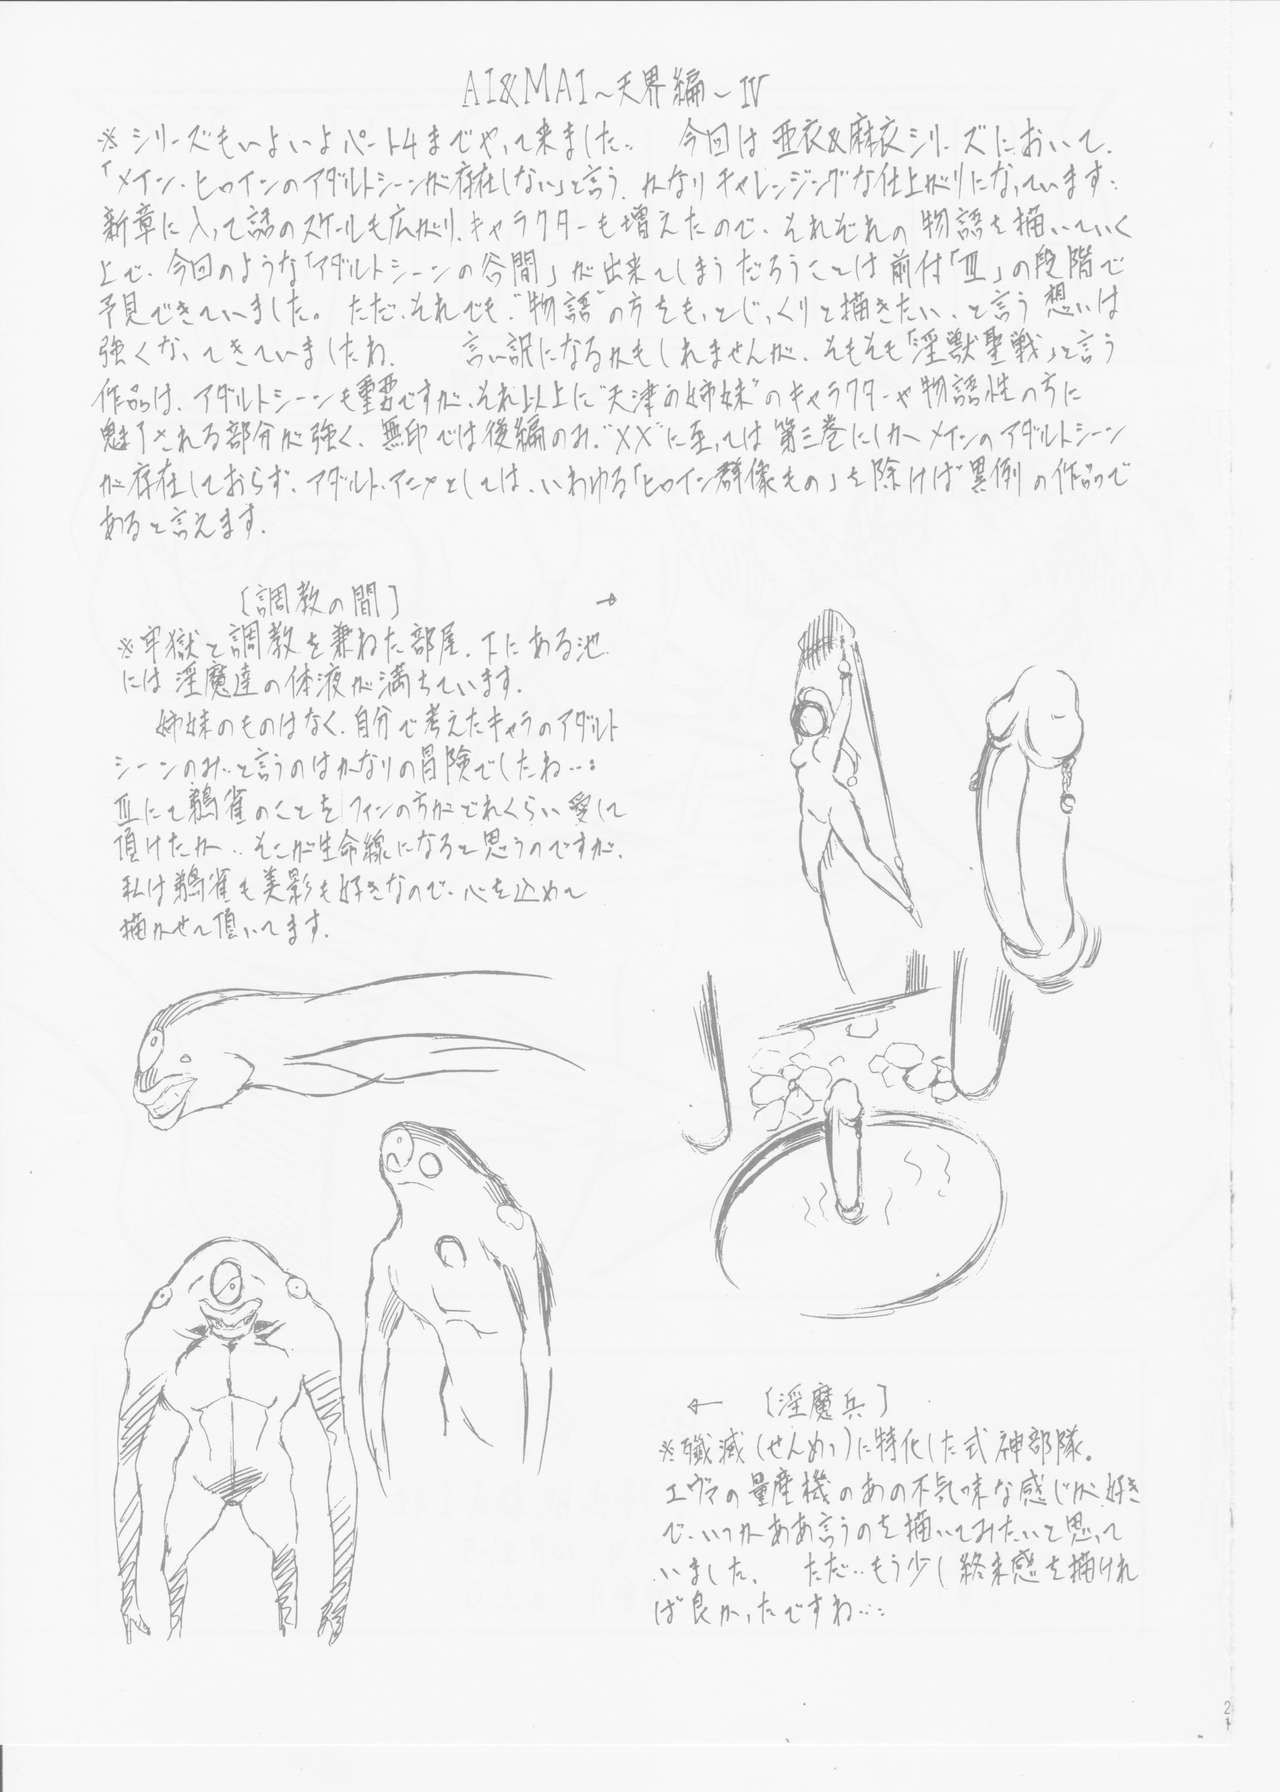 AI&MAI〜天界編〜Ⅳ
※シリーズもいよいよパート4までやって来ました… 今回は亜衣&麻衣シリーズにおいて、
「メイン・ヒロインのアダルトシーンが存在しない」と言う、かなりチャレンジングな仕上がりになっています…
新章に入って話のスケールも広がり、キャラクターも増えたので、それぞれの物語を描いていく
上で、今回のような「アダルトシーンの谷間」が出来てしまうだろうことは前付「Ⅲ」の段階で
予見できていました。 ただ、それでも、“物語”の方をもっとじっくりと描きたい、と言う想いは
強くなってきていましたね、 言い訳になるかもしれませんが、そもそも「淫獣聖戦」と言う
作品は、アダルトシーンも重要ですが、それ以上に“天津の姉妹”のキャラクターや物語性の方に
魅了される部分が強く、無印では後編のみ、“XX”に至っては第三巻にしかメインのアダルトシーン
が存在しておらず、アダルト・アニメとしては、いわゆる「ヒロイン群像もの」を除けば異例の作品で
あると言えます.
[調教の間] →
※牢獄と調教を兼ねた部屋、下にある池
には淫魔達の体液が満ちています.
姉妹のものはなく、自分で考えたキャラのアダルト
シーンのみ…と言うのはかなりの冒険でしたね…:
Ⅲにて鵺雀のことをファンの方がどれくらい愛して
頂けたか…そこが生命線になると思うのですが、
私は鵺雀も美影も好きなので、心を込めて
描かせて頂いてます.
← [淫魔兵]
※殲滅(せんめつ)に特化した式神部隊。
エヴァの量産機のあの不気味な感じが好き
で、いつかああ言うのを描いてみたいと思って
いました、 ただ…もう少し終末感を描けれ
ば良かったですね…:
2